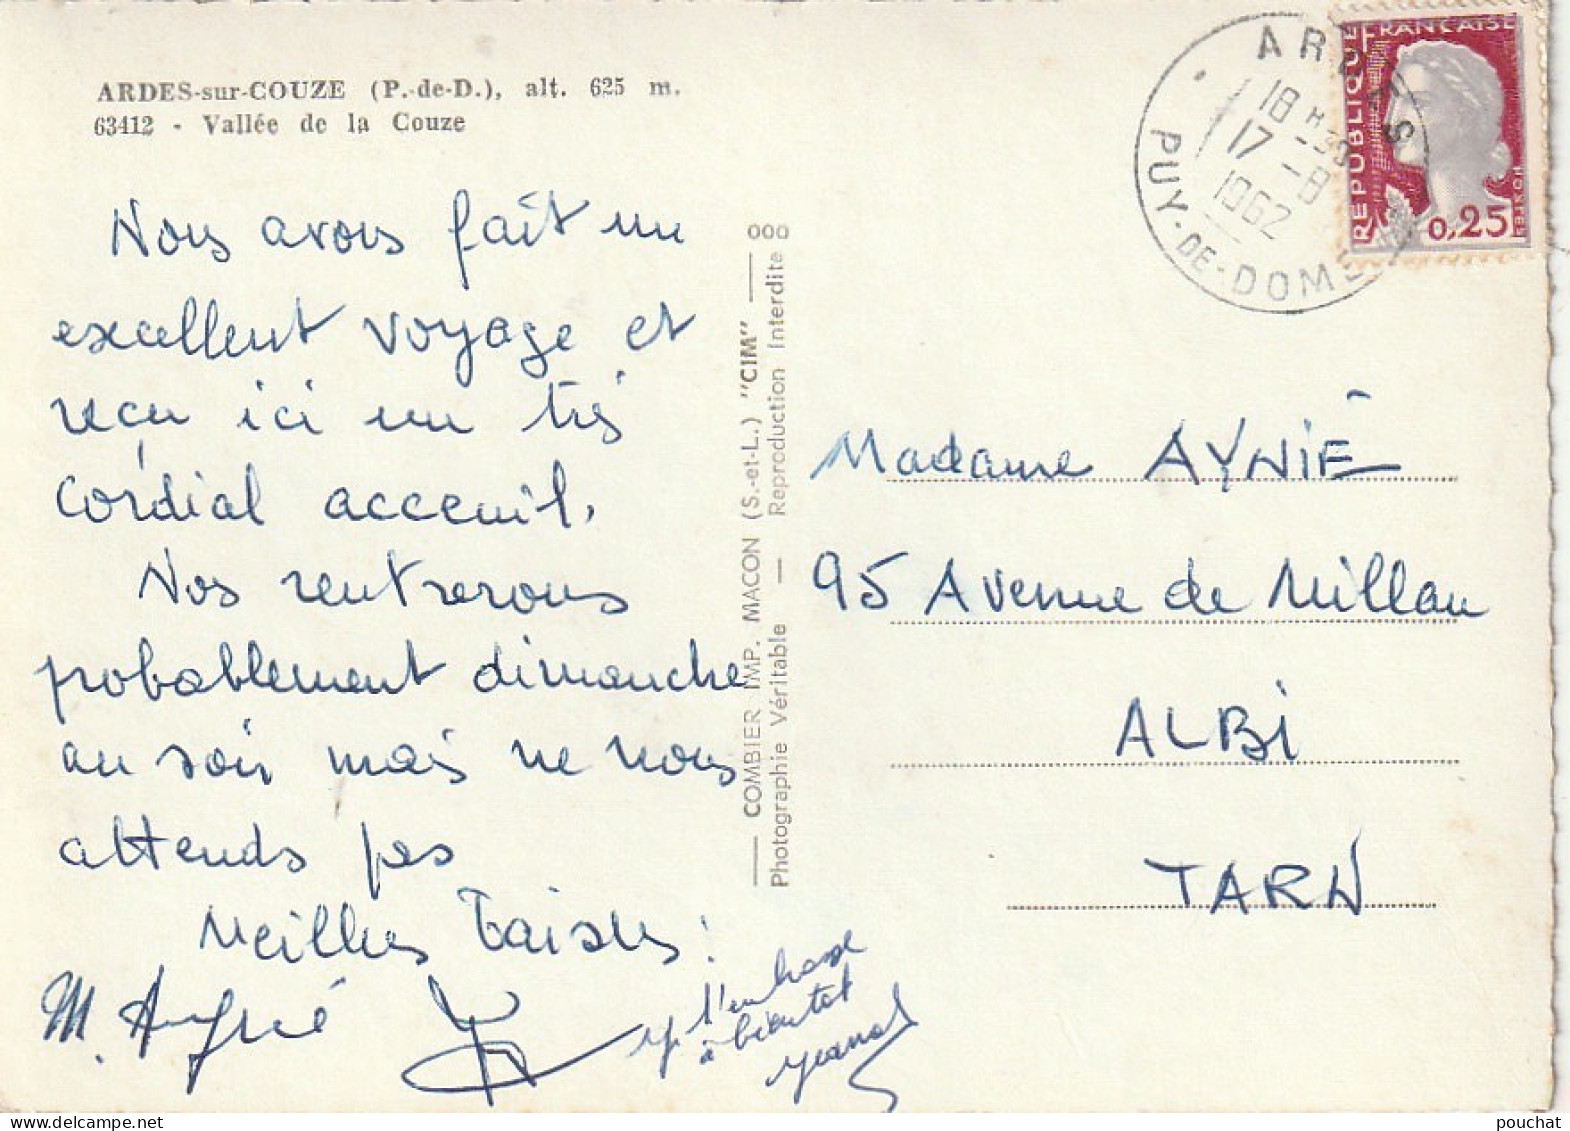 ARDES-sur-COUZE (P.-de-D.), alt. 625 m.
63412 - Vallée de la Couze
Nous avons fait un
excellent voyage et
reçu ici un très
cordial acceuil.
Nos rentrerons
probablement dimanche
au soir mais ne nous
attends pas
Meilleurs Baisers
M. Aynié
Je t'embrasse
à bientôt
COMBIER IMP. MACON (S.-et-L.) "CIM"
Photographie Véritable — Reproduction Interdite
000
ARDES
18 H -30
17 -8
1962
PUY-DE-DOME
REPUBLIQUE FRANÇAISE
0,25
Madame AYNIÉ
95 Avenue de Millau
ALBI
TARN
pouchat